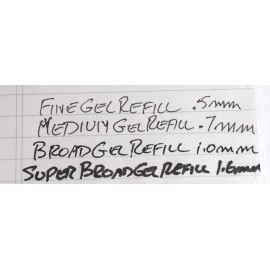 FINE GEL REFILL .5mm
MEDIUM GEL REFILL .7mm
BROAD GEL REFILL 1.0mm
SUPER BROAD GEL REFILL 1.6mm